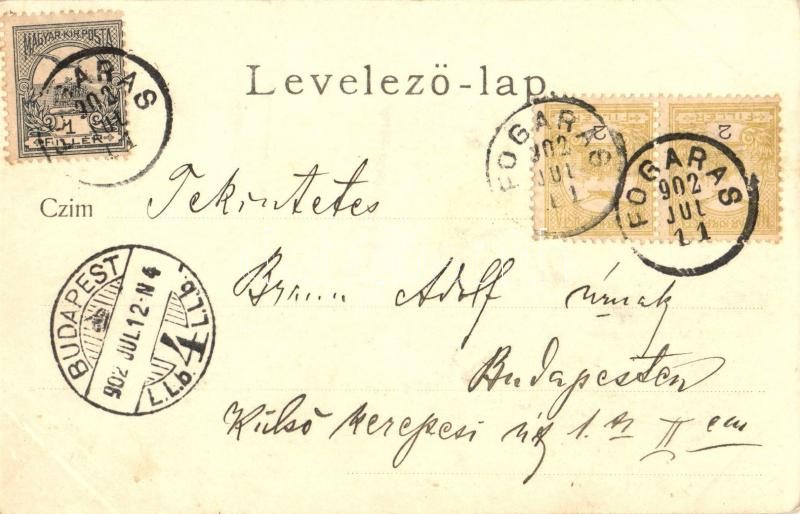 MAGYAR KIR. POSTA
1
FILLER
FOGARAS
902
JUL
11
Levelezö-lap.
2
FILLER
FOGARAS
902
JUL
11
2
FILLER
FOGARAS
902
JUL
11
Czim Tekintetes
BUDAPEST
902 JUL 12·N4
4
I.I.b.
I.I.b.
Adolf úrnak
Budapesten
Külső kerepesi út 1. sz II em